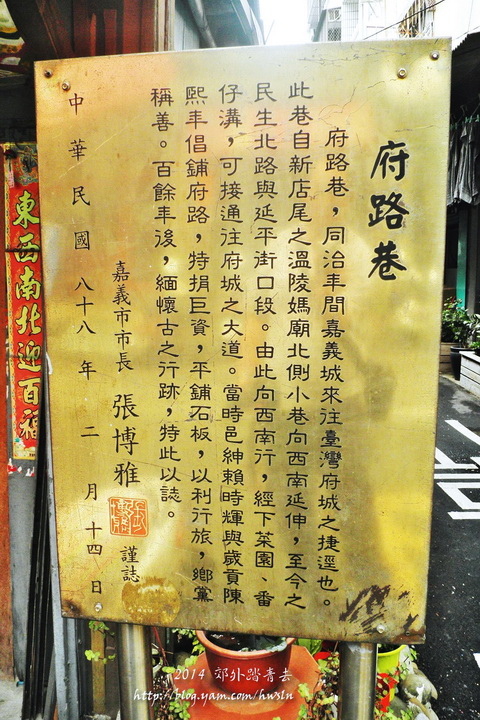 府路巷
府路巷，同治年間嘉義城來往臺灣府城之捷逕也。
此巷自新店尾之溫陵媽廟北側小巷向西南延伸，至今之
民生北路與延平街口段。由此向西南行，經下菜園、番
仔溝，可接通往府城之大道。當時邑紳賴時輝與歲貢陳
熙年倡鋪府路，特捐巨資，平鋪石板，以利行旅，鄉黨
稱善。百餘年後，緬懷古之行跡，特此以誌。
嘉義市市長 張博雅 謹誌
中華民國八十八年二月十四日
東西南北迎百福
2014 郊外踏青去
http://blog.yam.com/hwsln